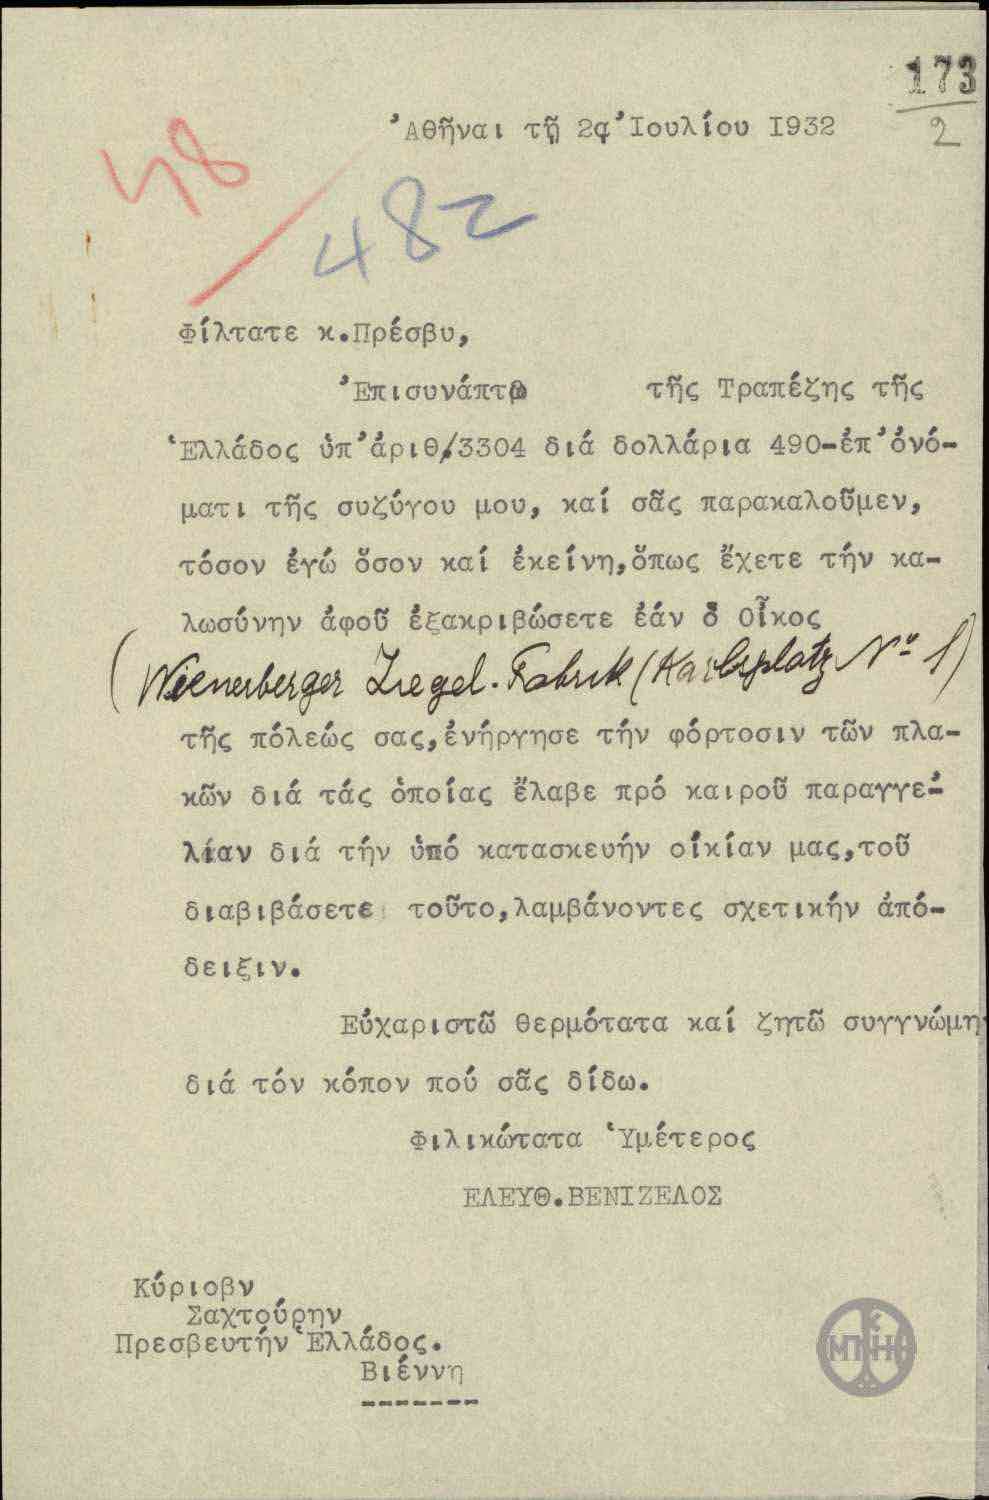 173
2
Ἀθῆναι τῇ Ἰουλίου 1932
48
482
Φίλτατε κ.Πρέσβυ,
Ἐπισυνάπτω τῆς Τραπέζης τῆς
Ἑλλάδος ὑπ'ἀριθ/3304 διά δολλάρια 490-ἐπ'ὀνό-
ματι τῆς συζύγου μου, καί σᾶς παρακαλοῦμεν,
τόσον ἐγώ ὅσον καί ἐκείνη,ὅπως ἔχετε τήν κα-
λωσύνην ἀφοῦ ἐξακριβώσετε ἐάν ὁ Οἶκος
(Wienerberger Ziegel-Fabrik (Karlsplatz Nº 1)
τῆς πόλεώς σας,ἐνήργησε τήν φόρτοσιν τῶν πλα-
κῶν διά τάς ὁποίας ἔλαβε πρό καιροῦ παραγγε-
λίαν διά τήν ὑπό κατασκευήν οἰκίαν μας,τοῦ
διαβιβάσετε τοῦτο,λαμβάνοντες σχετικήν ἀπό-
δειξιν.
Εὐχαριστῶ θερμότατα καί ζητῶ συγγνώμη
διά τόν κόπον πού σᾶς δίδω.
Φιλικώτατα Ὑμέτερος
ΕΛΕΥΘ.ΒΕΝΙΖΕΛΟΣ
Κύριοβν
Σαχτούρην
Πρεσβευτήν Ἑλλάδος.
Βιέννη